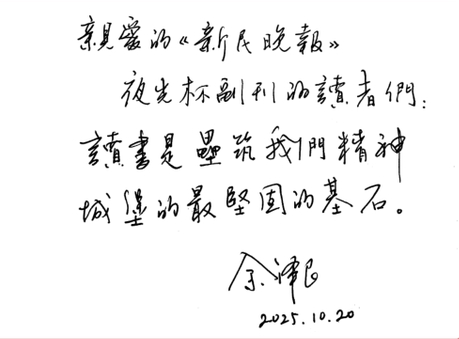 親愛的《新民晚報》
夜光杯副刊的讀者們：
讀書是壘筑我們精神
城堡的最堅固的基石。
余澤民
2025.10.20